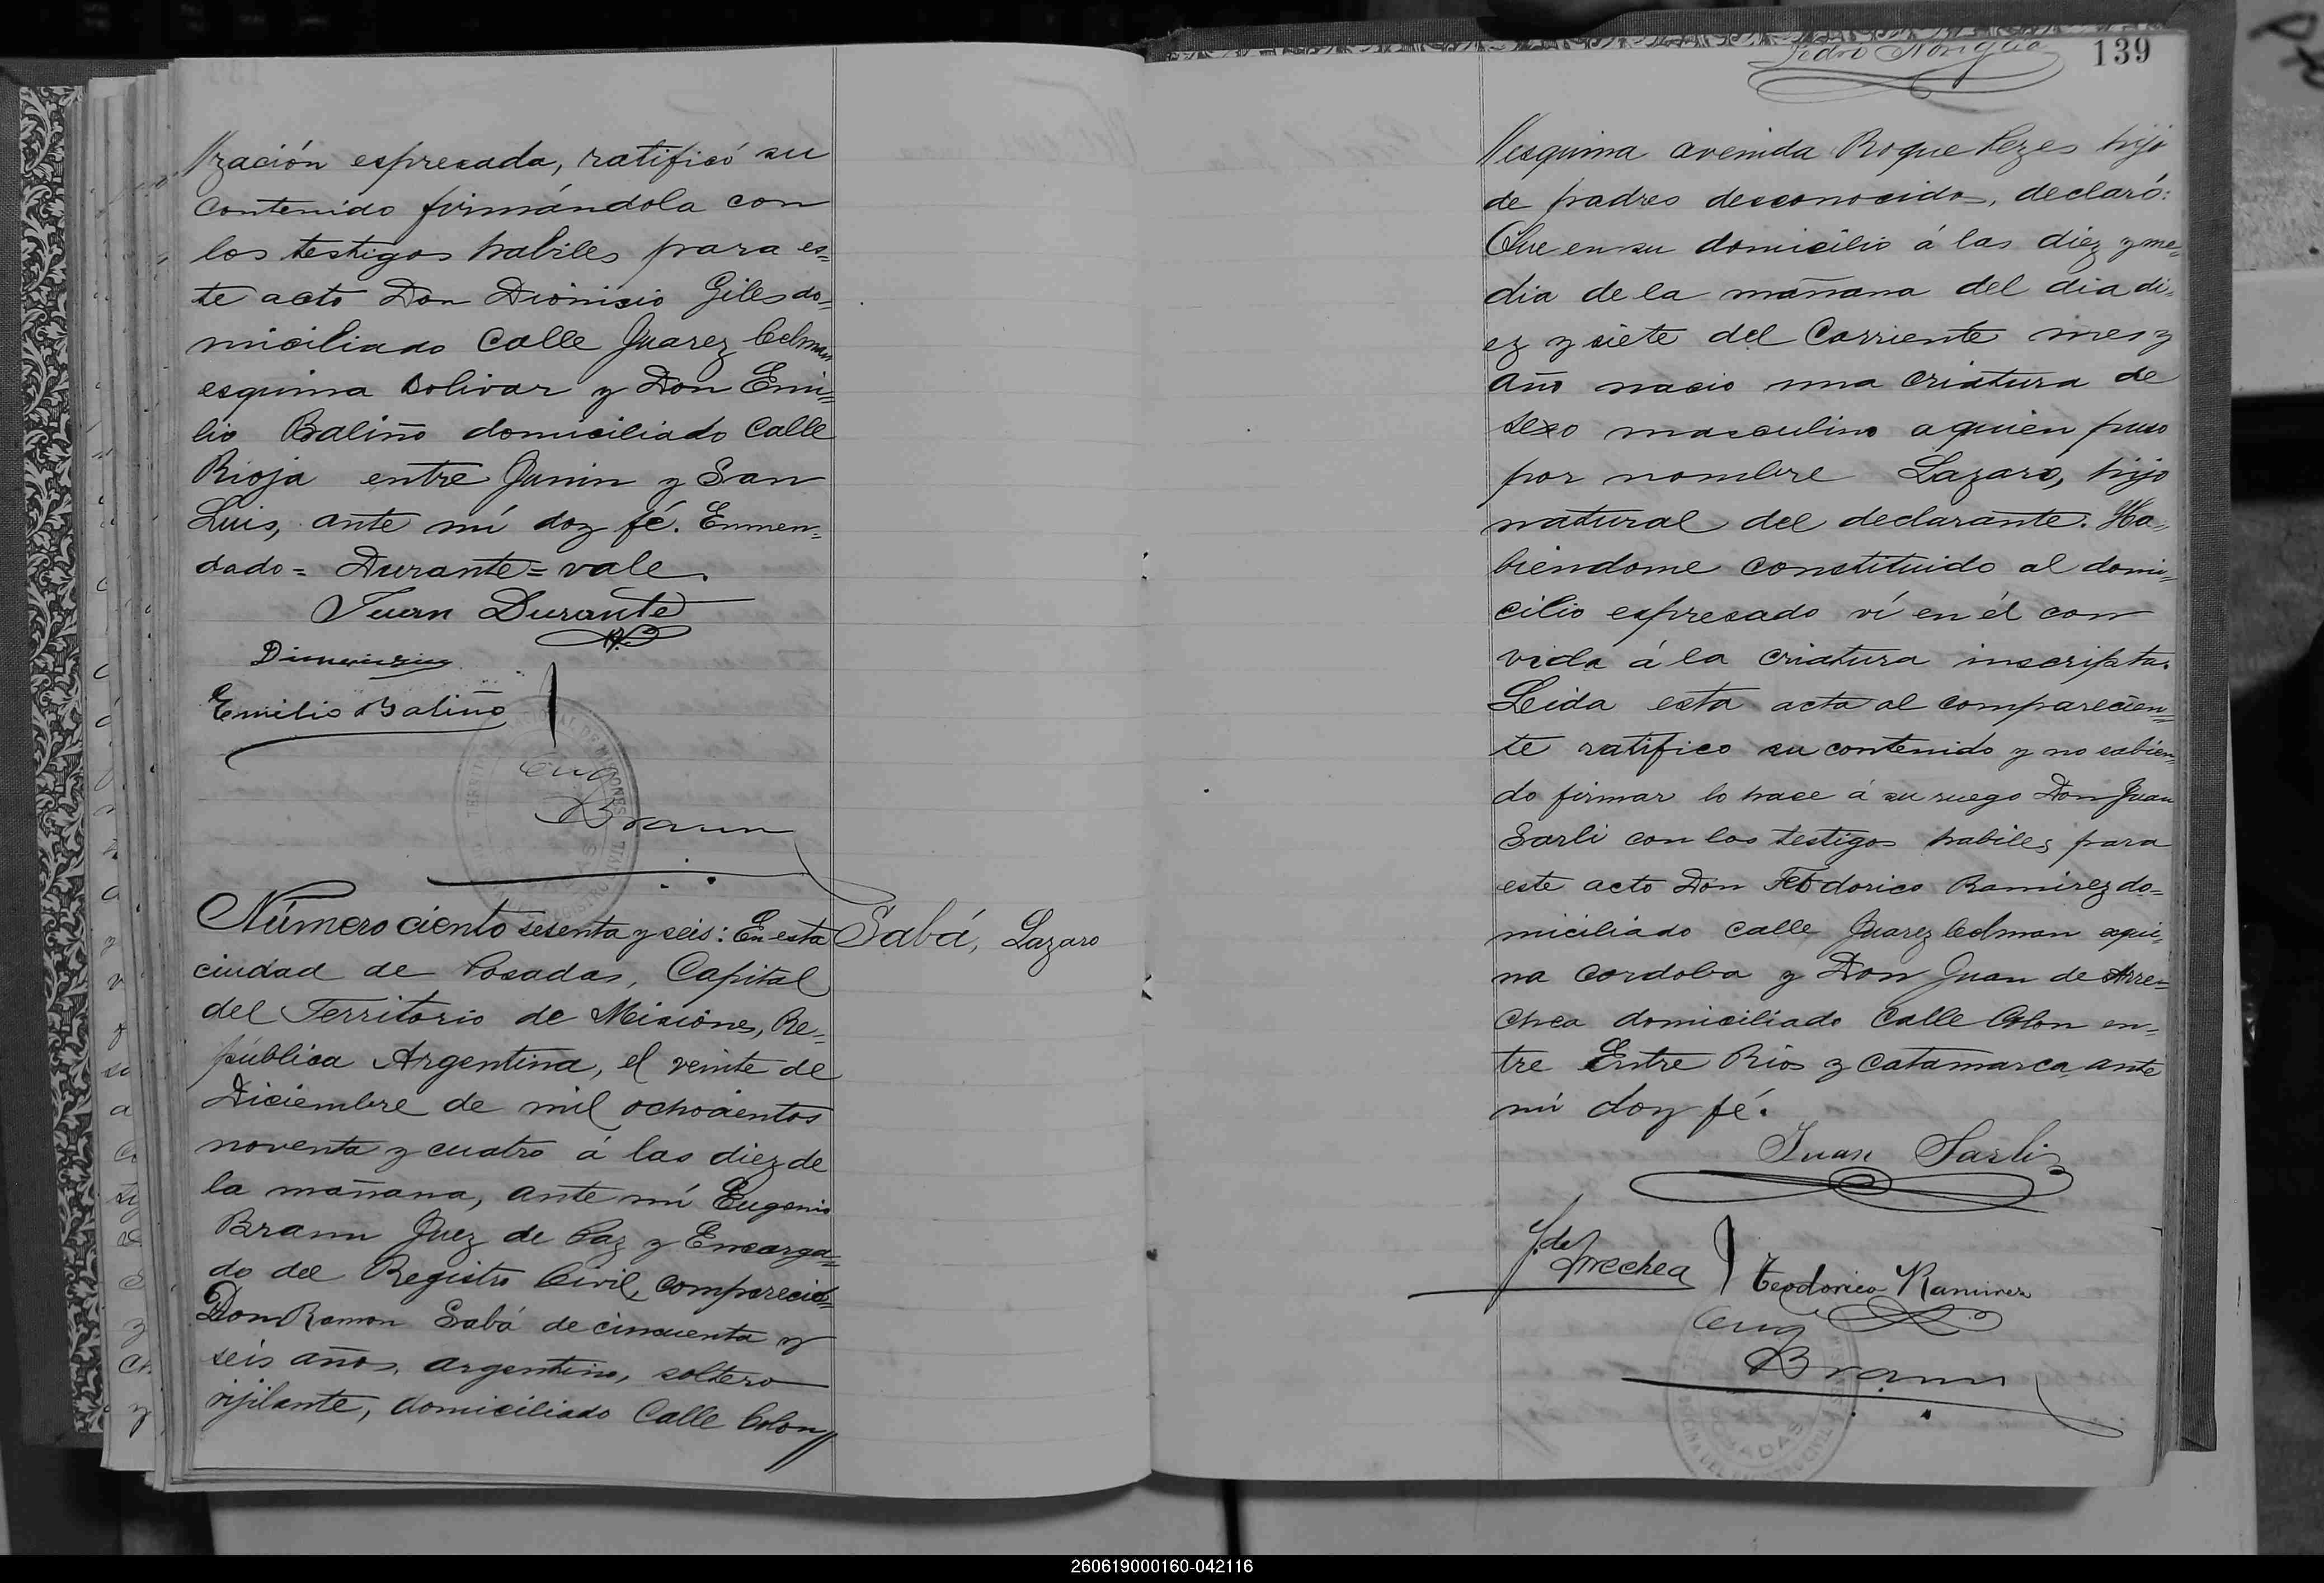 zación espresada, ratificó su
contenido firmándola con
los testigos habiles para es=
te acto Don Dionisio Giles do=
miciliado Calle Juarez Celman
esquina Bolivar y Don Emi=
lio Baliño domiciliado Calle
Rioja entre Junin y San
Luis, ante mí doy fé. Enmen=
dado = Durante = vale.
Juan Durante
Emilio Baliño
Eug
Braun
Número ciento sesenta y seis: En esta
ciudad de Posadas, Capital
del Territorio de Misiones, Re=
pública Argentina, el veinte de
Diciembre de mil ochocientos
noventa y cuatro á las diez de
la mañana, ante mí Eugenio
Braun Juez de Paz y Encarga=
do del Registro Civil, compareció=
Don Ramon Sabá de cincuenta y
seis años, argentino, soltero
vijilante, domiciliado Calle Colon
Sabá, Lazaro
139
Pedro
esquina avenida Roque Perez hijo
de padres desconocidos, declaró:
Que en su domicilio á las diez y me=
dia de la mañana del dia di=
ez y siete del Corriente mes y
año nacio una criatura de
sexo masculino a quien puso
por nombre Lazaro, hijo
natural del declarante. Ha=
biendome constituido al domi=
cilio espresado ví en él con
vida á la criatura inscripta.
Leida esta acta al comparecien=
te ratifico su contenido y no sabien=
do firmar lo hace á su ruego Don Juan
Sarli con los testigos habiles para
este acto Don Teodorico Ramirez do=
miciliado calle Juarez Celman esqui=
na Cordoba y Don Juan de Arre=
chea domiciliado Calle Colon en=
tre Entre Rios y Catamarca, ante
mi doy fé.
Juan Sarli
J. de Arrechea
Teodorico Ramirez
Eug
Braun
POSADAS
260619000160-042116